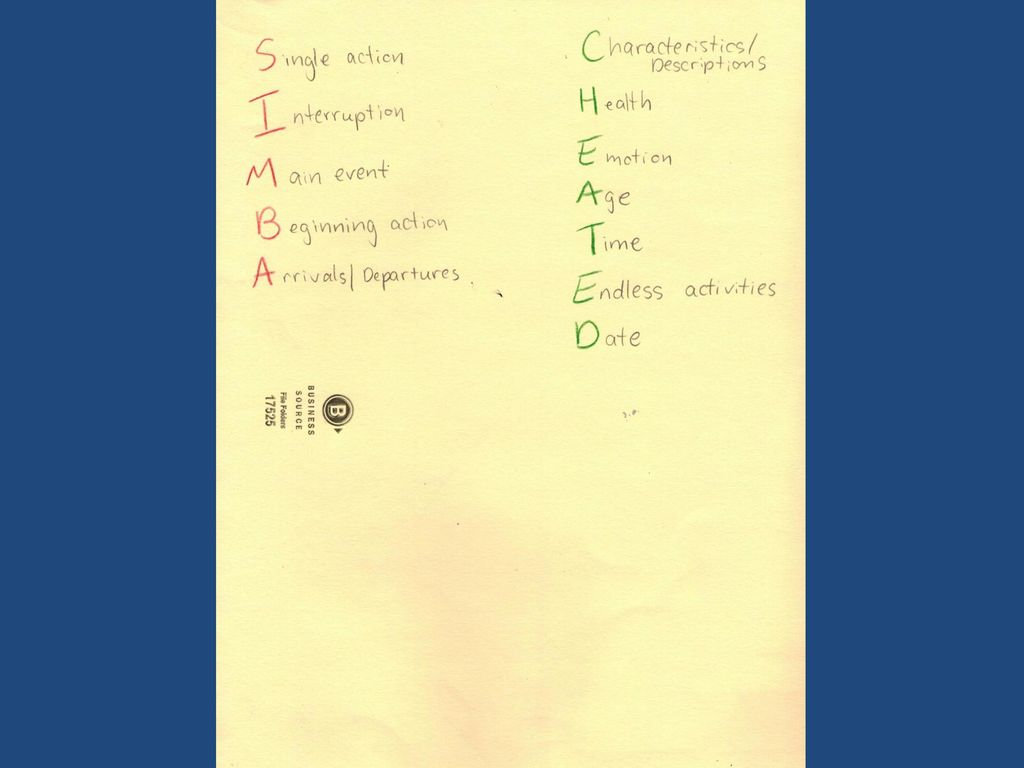 Single action
Interruption
Main event
Beginning action
Arrivals/Departures.
Characteristics/
Descriptions
Health
Emotion
Age
Time
Endless activities
Date
B
BUSINESS
SOURCE
File Folders
17525